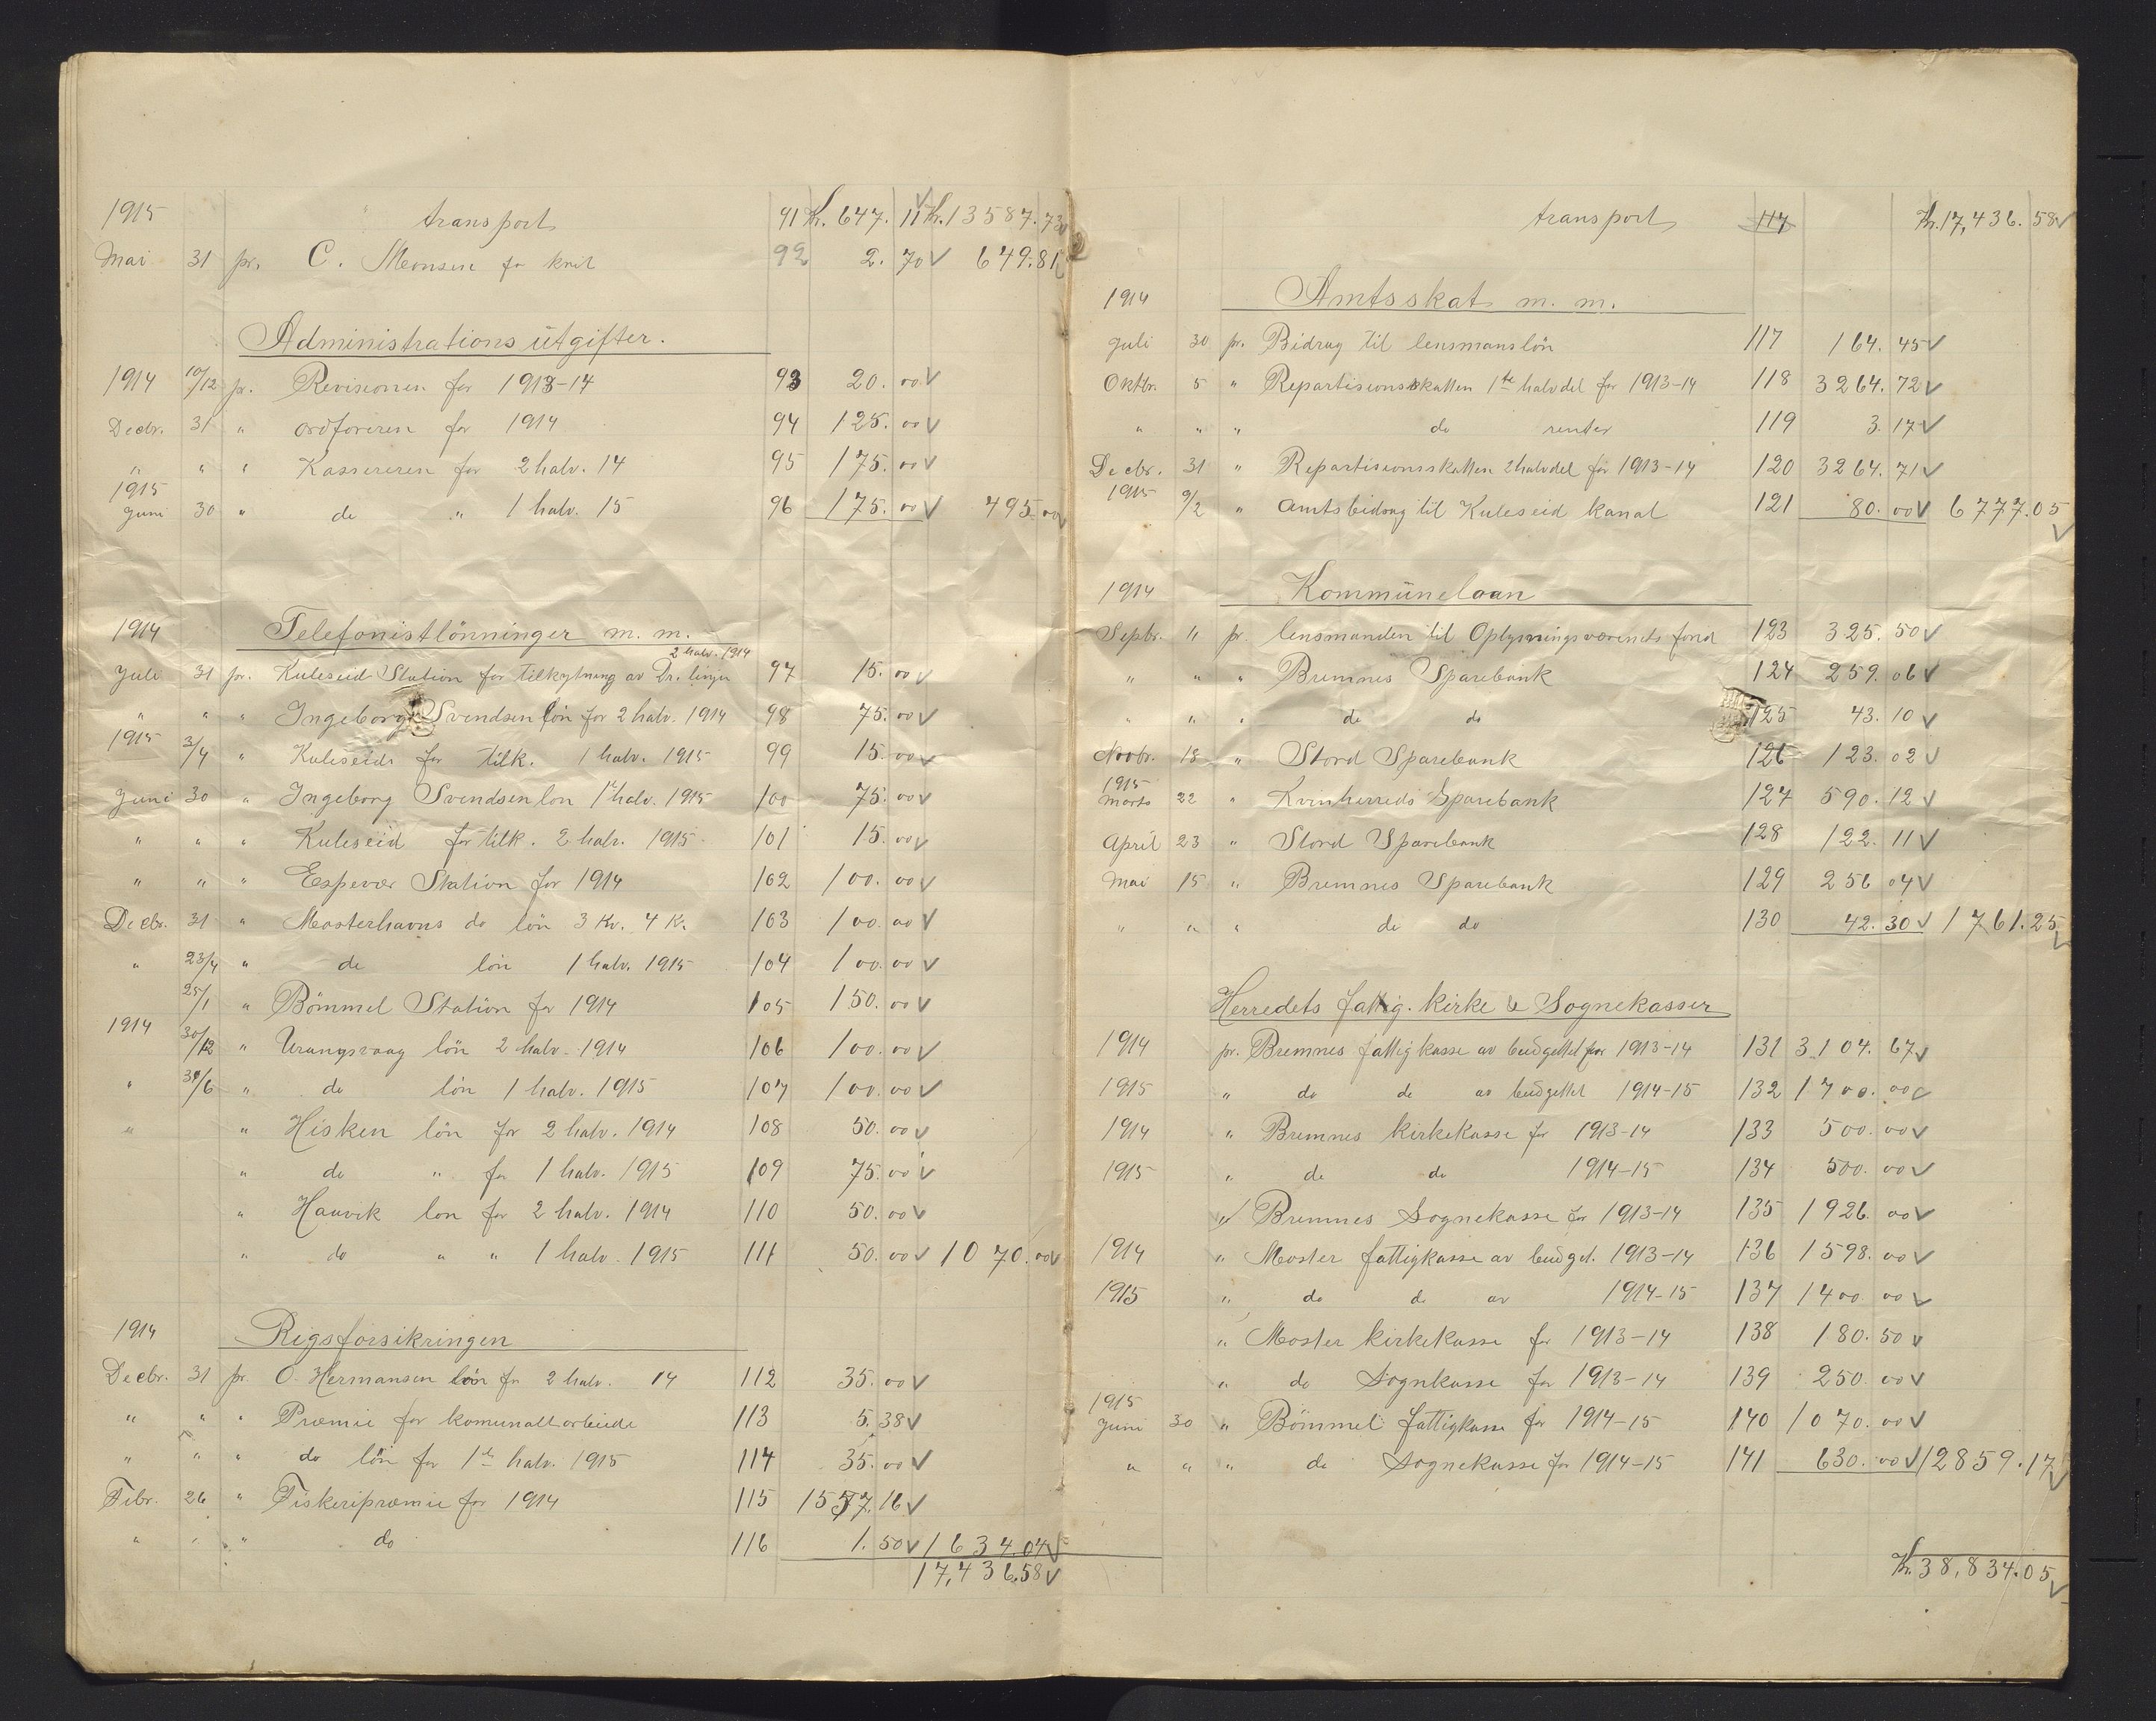 1915 transport 91 Kr. 647. 11 Kr. 13587. 73
Mai 31 pr. C. Monsen for kvit 92 2. 70 649.81
Administrationsutgifter.
1914 10/12 pr. Revisionen for 1913-14 93 20. 00
Decbr. 31 " ordföreren for 1914 94 125. 00
" " " Kassereren for 2 halv. 14 95 175. 00
1915
Juni 30 " do " 1 halv. 15 96 175. 00 495. 00
1914 Telefonistlönninger m. m.
2 halv. 1914
Juli 31 pr. Kuleseid Station for tilknytning av Dr. linje 97 15. 00
" " " Ingeborg Svendsen lön for 2 halv. 1914 98 75. 00
1915 3/4 " Kuleseids for tilk. 1 halv. 1915 99 15. 00
Juni 30 " Ingeborg Svendsen lon 1ste halv. 1915 100 75. 00
" " " Kuleseid for tilk. 2 halv. 1915 101 15. 00
" " " Espevær Station for 1914 102 100. 00
Decbr. 31 " Mosterhavns do lön 3 Kv. 4 Kv. 103 100. 00
" 23/4 " do lön 1 halv. 1915 104 100. 00
25/1 " Bömmel Station for 1914 105 150. 00
1914 30/12 " Urangsvaag lön 2 halv. 1914 106 100. 00
" 30/6 " do lön 1 halv. 1915 107 100. 00
" " Hisken lön for 2 halv. 1914 108 50. 00
" do " for 1 halv. 1915 109 75. 00
" Haavik lon for 2 halv. 1914 110 50. 00
" do " " 1 halv. 1915 111 50. 00 1070. 00
1914 Rigsforsikringen
Decbr. 31 pr. O. Hermansen lön for 2 halv. 14 112 35. 00
" " " Præmie for komunalt arbeide 113 5. 38
" " " do lön for 1ste halv. 1915 114 35. 00
Febr. 26 " Fiskeripræmie for 1914 115 1557. 16
" " " do 116 1. 50 1634.04
17,436.58
transport 117 Kr. 17,436. 58
1914 Amtsskat m. m.
Juli 30 pr. Bidrag til lensmanslön 117 164. 45
Oktbr. 5 " Repartisionsskatten 1ste halvdel for 1913-14 118 3264. 72
" " " do renter 119 3. 17
Decbr. 31 " Repartisionsskatten 2 halvdel for 1913-14 120 3264. 71
1915 9/2 " Amtsbidrag til Kuleseid kanal 121 80. 00 6777.05
1914 Kommünelaan
Septbr. " pr. lensmanden til Oplysningsvæsenets fond 123 325. 50
" " " Bremnes Sparebank 124 259. 06
" " " do do 125 43. 10
Novbr. 18 " Stord Sparebank 126 123. 02
1915
Marts 22 " Kvinherreds Sparebank 127 590. 12
April 23 " Stord Sparebank 128 122. 11
Mai 15 " Bremnes Sparebank 129 256 04
" " " do do 130 42. 30 1761.25
Herredets fattig. kirke & Sognekasser
1914 pr. Bremnes fattigkasse av budgettet for 1913-14 131 3104. 67
1915 " do do av budgettet 1914-15 132 1700. 00
1914 " Bremnes kirkekasse for 1913-14 133 500. 00
1915 " do do 1914-15 134 500. 00
" Bremnes Sognekasse for 1913-14 135 1926. 00
1914 " Moster fattigkasse av budget. 1913-14 136 1598. 00
1915 " do do av 1914-15 137 1400. 00
" Moster kirkekasse for 1913-14 138 180. 50
" do Sognkasse for 1913-14 139 250. 00
1915
Juni 30 " Bömmel fattigkasse for 1914-15 140 1070. 00
" " " do Sognekasse for 1914-15 141 630. 00 12859.17
Kr. 38,834.05